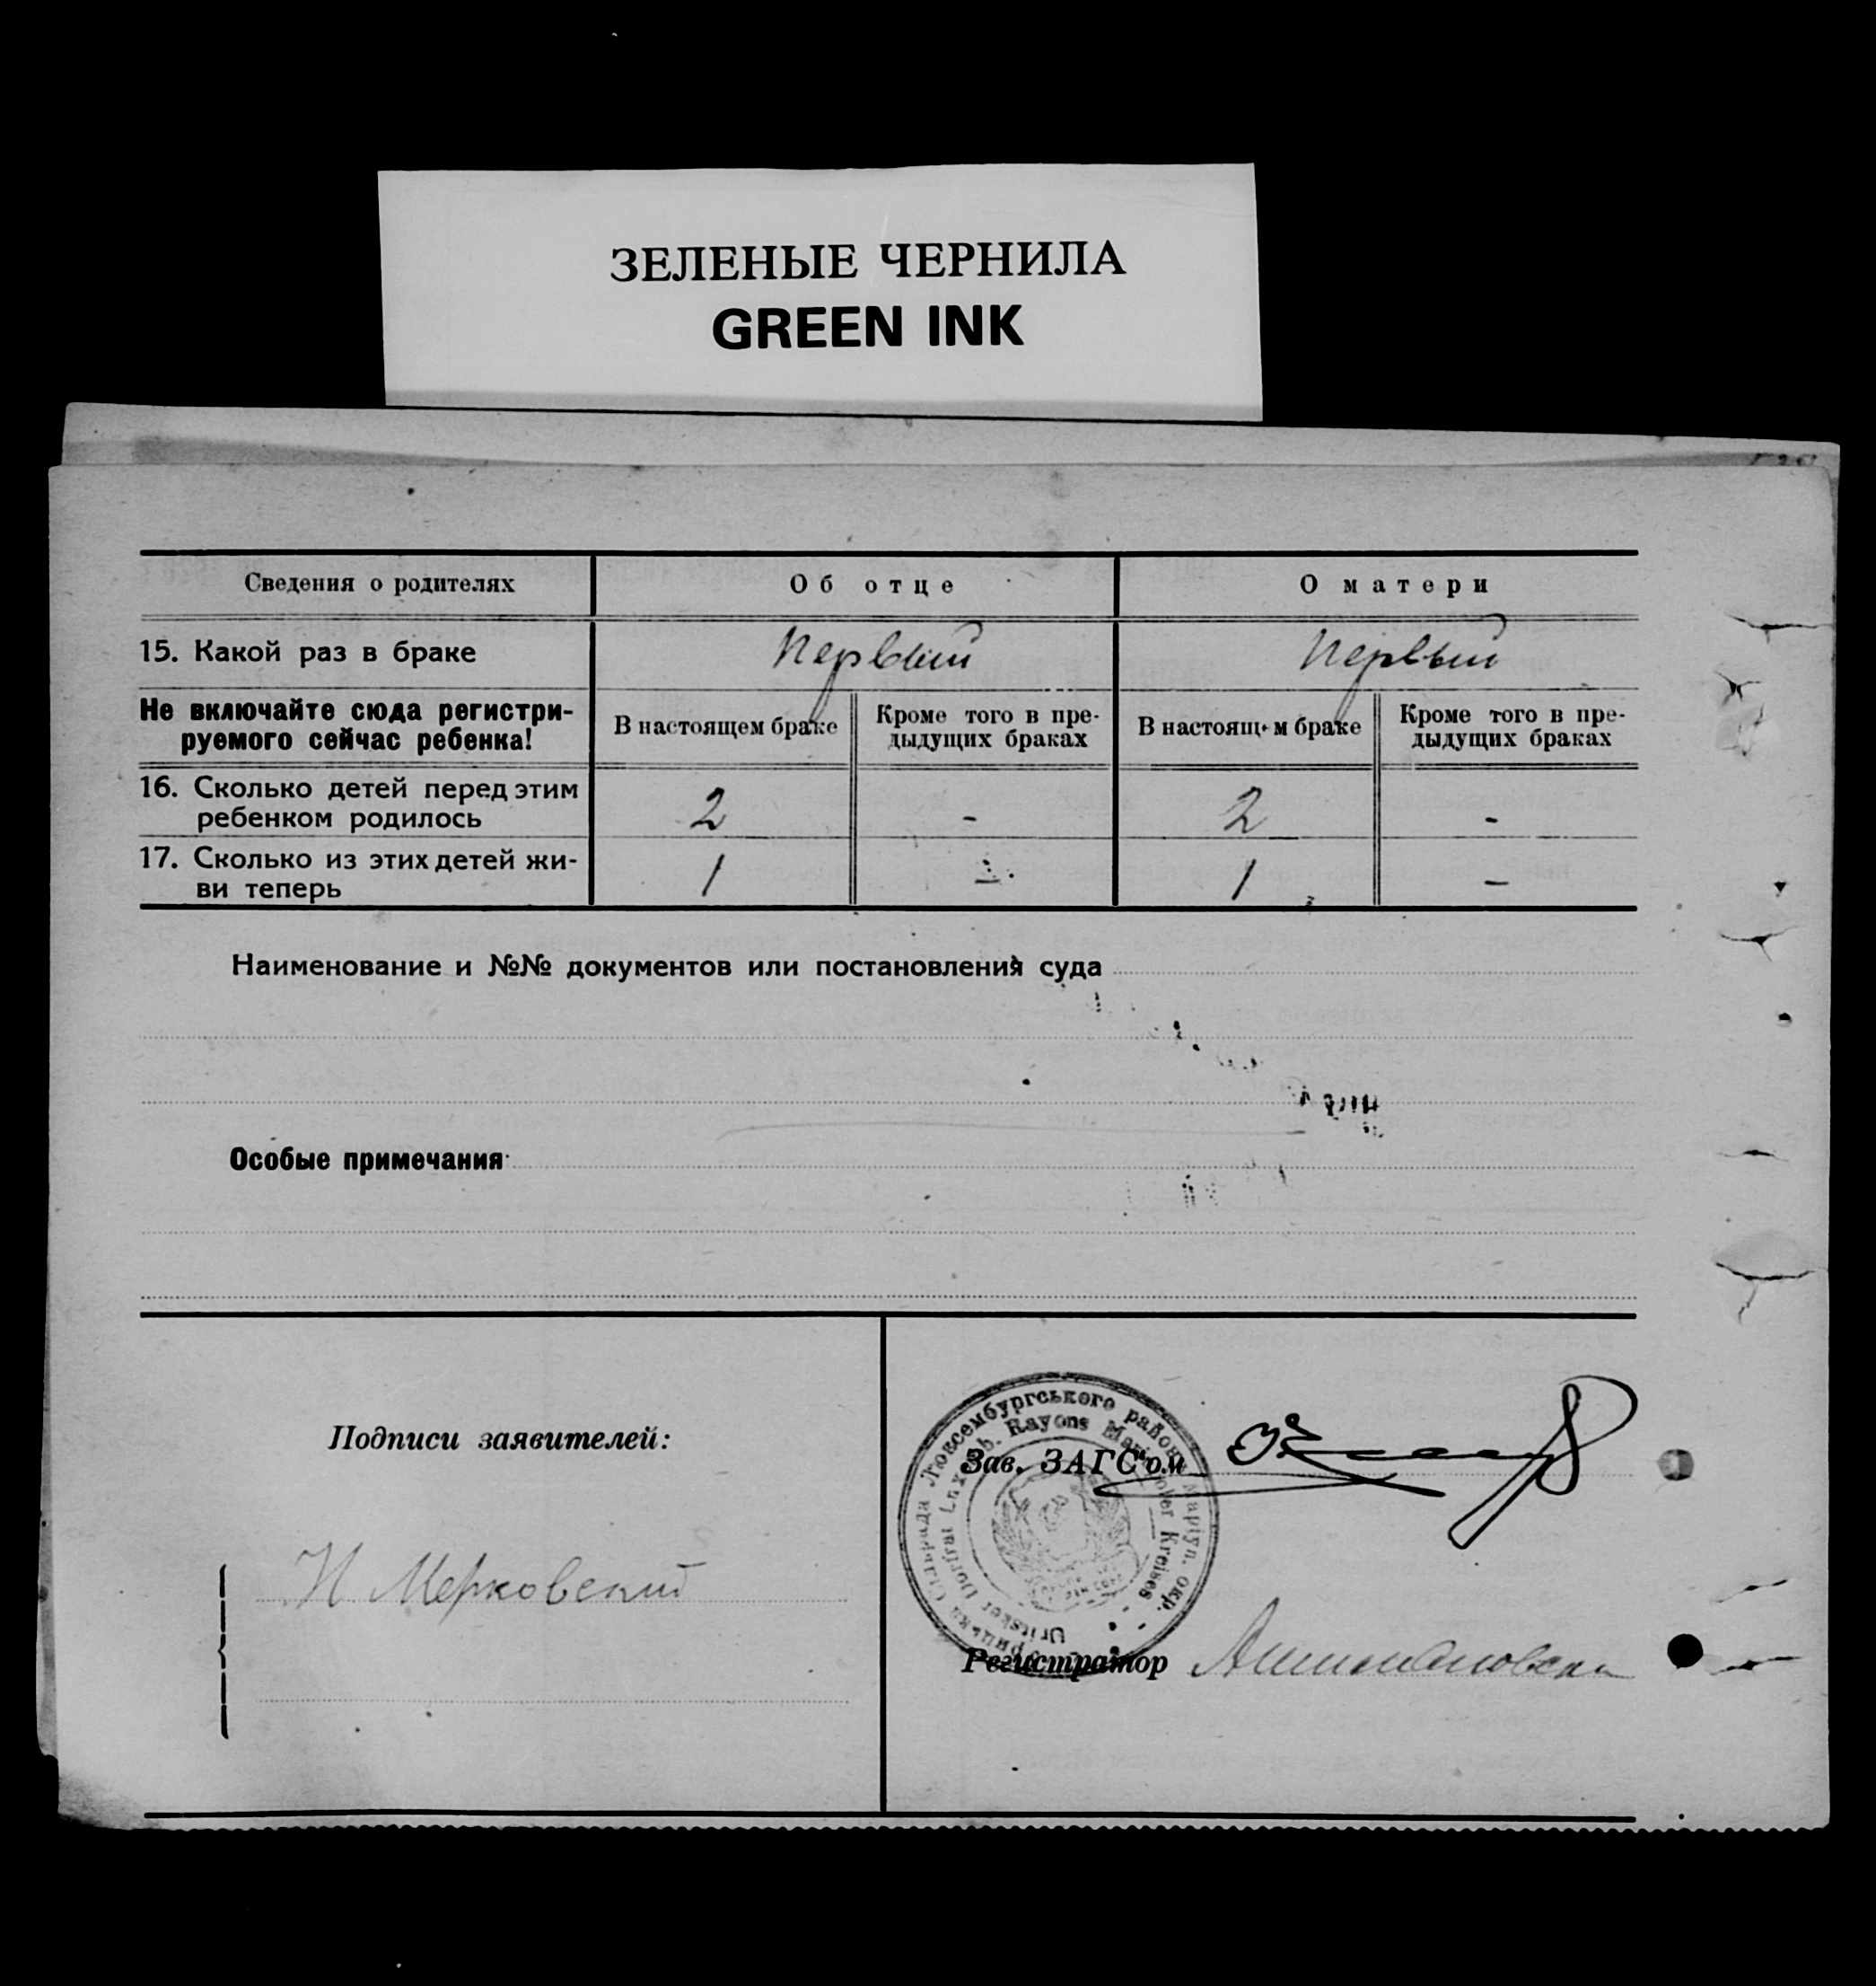 ЗЕЛЕНЫЕ ЧЕРНИЛА
GREEN INK
Сведения о родителях
Об отце
О матери
15. Какой раз в браке
Первый
Первый
Не включайте сюда регистри-
руемого сейчас ребенка!
В настоящем браке
Кроме того в пре-
дыдущих браках
В настоящем браке
Кроме того в пре-
дыдущих браках
16. Сколько детей перед этим
ребенком родилось
2
-
2
-
17. Сколько из этих детей жи-
ви теперь
1
-
1
-
Наименование и №№ документов или постановления суда
Особые примечания
Подписи заявителей:
Н Мерковский
Люксембургського району Маріуп. окр.
Rayons Mariupoler Kreises
Зав. ЗАГС'ом
Регистратор